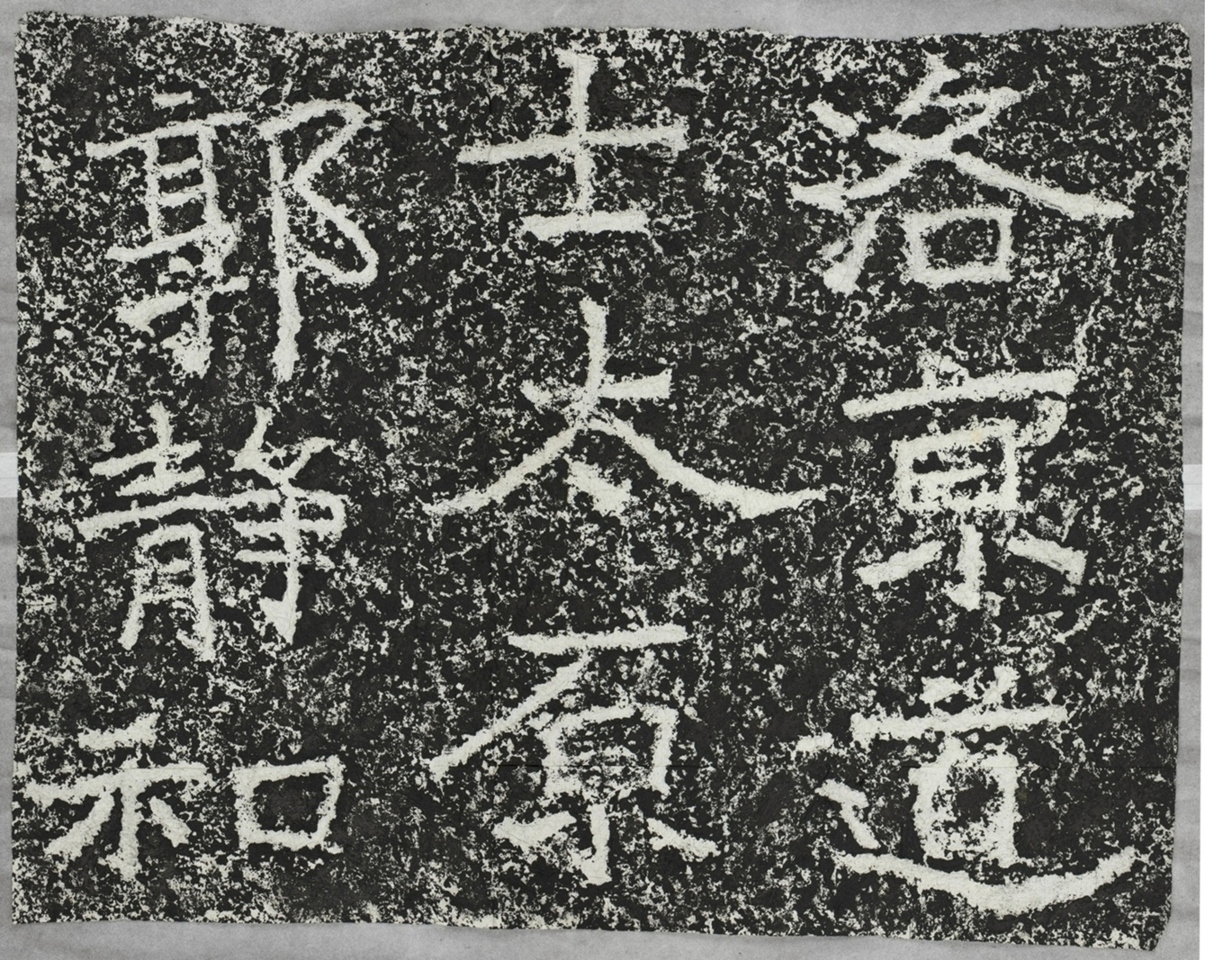 洛京道
士太原
郭静和